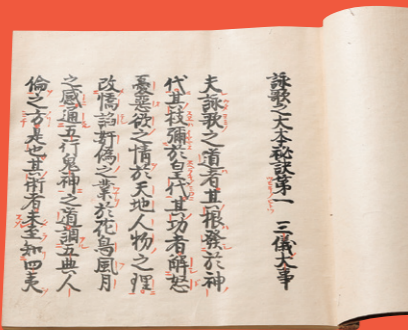 詠歌之大本秘訣第一 三儀大事
夫詠歌之道者其根發於神
代其枝彌於皇代其功者解怒
憂悪欲之情於天地人物之理
改憍諂奸偽之業於花鳥風月
之感通五行鬼神之道調五典人
倫之方是也其術者未至知四夷